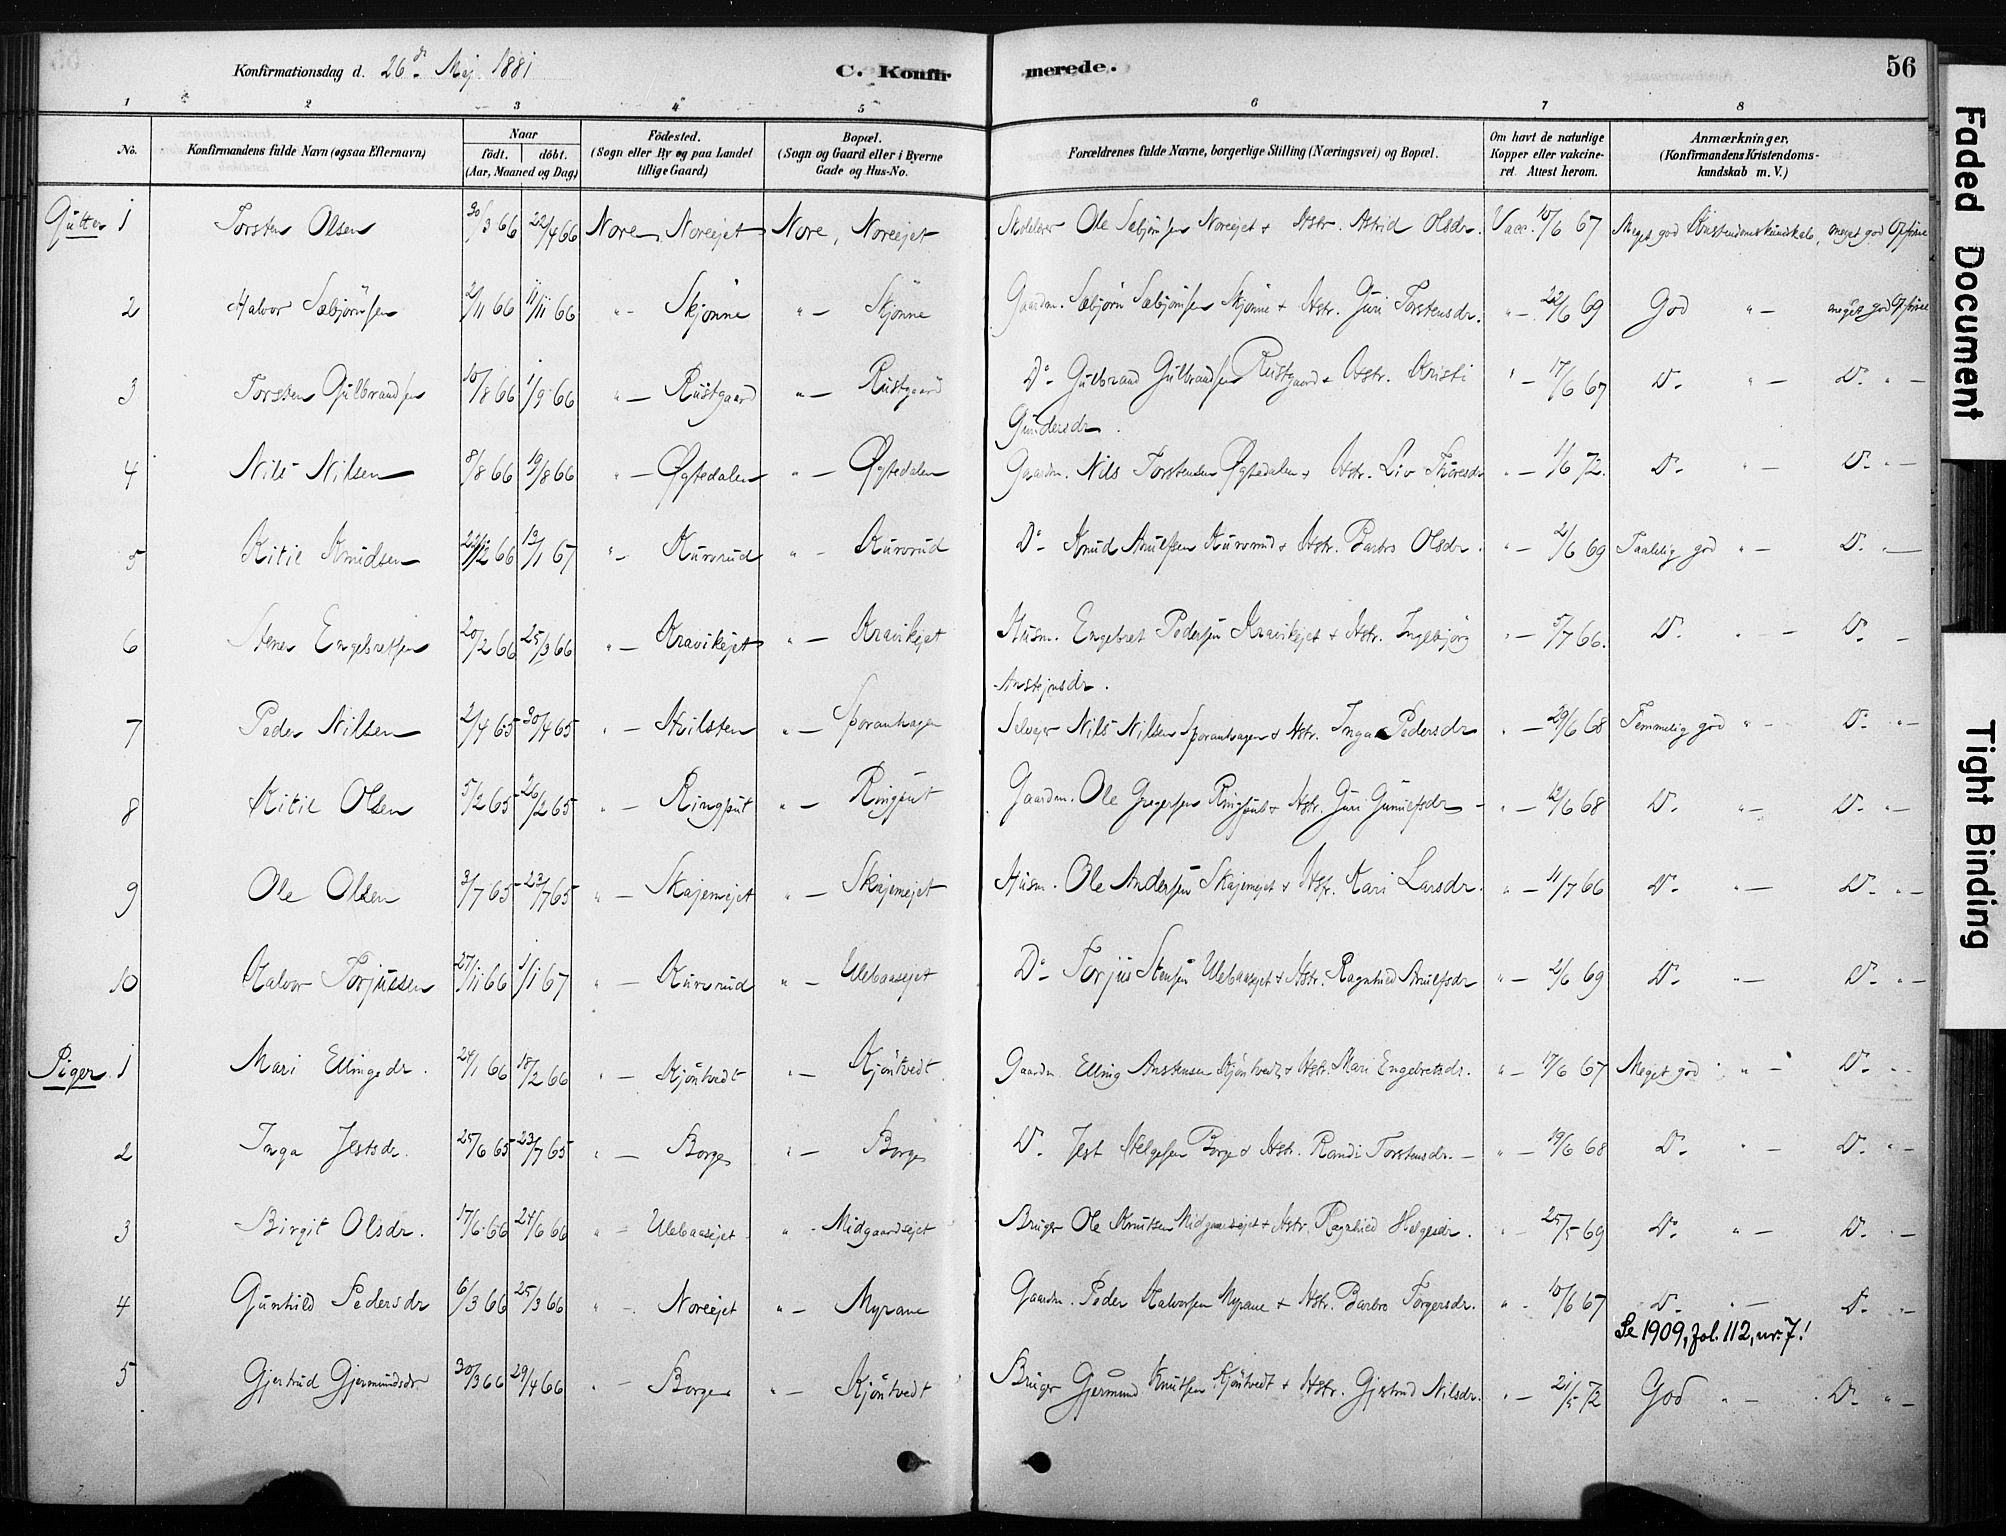 Konfirmationsdag d. 26de Maj 1881 C. Konfirmerede. 56
1 2 3 4 5 6 7 8
No. Konfirmandens fulde Navn (ogsaa Efternavn) Naar födt. döbt. (Aar, Maaned og Dag) Födested. (Sogn eller By og paa Landet tillige Gaard) Bopæl. (Sogn og Gaard eller i Byerne Gade og Hus-No. Forældrenes fulde Navne, borgerlige Stilling (Næringsvei) og Bopæl. Om havt de naturlige Kopper eller vakcineret. Attest herom. Anmærkninger, (Konfirmandens Kristendomskundskab m. V.)
Gutter 1 Torsten Olsen 30/3 66 22/4 66 Nore, Noreejet Nore, Noreejet Ole Sæbjörnsen Noreejet + Hstr. Astrid Olsdr. Vacc. 10/6 67 Meget god Kristendomskundskab, meget god Opførsel
2 Halvor Sæbjörnsen 2/11 66 11/11 66 " — Skjönne " — Skjönne Gaardm. Sæbjörn Sæbjörnsen Skjönne + Hstr. Guri Torstensdr. " — 22/6 69 God " — meget god Opførsel
3 Torsten Gulbrandsen 10/8 66 1/9 66 " — Rustgaard " — Rustgaard Do Gulbrand Gulbrandsen Rustgaard + Hstr. Kristi " — 17/6 67 Do " — Do " —
Gundersdr.
4 Nils Nilsen 8/8 66 19/8 66 " — Øgstedalen " — Øgstedalen Gaardm. Nils Torstensen Øgstedalen + Hstr. Liv Thoresdr " — 1/6 72. Do " — Do " —
5 Kitil Knudsen 22/12 66 13/1 67 " — Kuvrud " — Kuvrud Do Knud Knutsen Kuvrud + Hstr. Barbro Olsdr. " — 2/6 69 Taalelig god " — Do " —
6 Stener Engebretsen 20/2 66 25/3 66 " — Kravikejet " — Kravikejet Husm. Engebret Pedersen Kravikejet + Hstr. Ingebjörg " — 5/7 66. Do " — Do " —
Anstejnsdr.
7 Peder Nilsen 2/4 65 30/4 65 " — Hvilsten " — Sporanhagen Selvejer Nils Nilsen Sporanhagen + Hstr. Inga Pedersdr " — 29/6 68 Temmelig god " — Do " —
8 Kitil Olsen 5/2 65 26/2 65 " — Ringput " — Ringput Gaardm. Ole Gregersen Ringput + Hstr. Guri Gunulfsdr " — 12/6 68 Do " — Do " —
9 Ole Olsen 3/7 65 23/7 65 " — Skajemejet " — Skajemejet Husm. Ole Andersen Skajemejet + Hstr. Kari Larsdr. " — 11/7 66 Do " — Do " —
10 Halvor Torjussen 27/11 66 1/1 67 " — Kuvrud " — Ulebaasejet Do Torjus Stensen Ulebaasejet + Hstr. Ragnhild Arnulfsdr " — 2/6 69 Do " — Do " —
Piger 1 Mari Ellingsdr. 24/1 66 18/2 66 " — Kjöntvedt " — Kjöntvedt Gaardm Elling Anstensen Kjöntvedt + Hstr. Mari Engebretsdr. " — 17/6 67 Meget god " — Do " —
2 Inga Jestsdr. 25/6 65 23/7 65 " — Borge " — Borge Do Jest Helgesen Borge + Hstr. Randi Torstensdr. " — 19/6 68 Do " — Do " —
3 Birgit Olsdr. 17/6 66 24/6 66 " — Ulebaasejet " — Midgaardsejet Bruger Ole Knutsen Midgaardsejet + Hstr. Ragnhild Helgesdr. " — 25/5 69 Do " — Do " —
4 Gunhild Pedersdr 6/3 66 25/3 66 " — Noreejet " — Myrane Gaardm. Peder Halvorsen Myrane + Hstr. Barbro Torgersdr. " — 10/6 67 Do " — Do " —
Se 1909, fol. 112, nr. 7!
5 Gjertrud Gjermundsdr 30/3 66 29/4 66 " — Borge " — Kjöntvedt Bruger Gjermund Knutsen Kjöntvedt + Hstr. Gjertrud Nilsdr. " — 21/5 72 God " — Do " —
Faded Document
Tight Binding